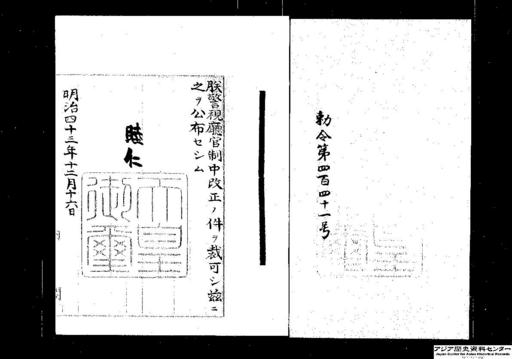 勅令第四百四十一号
朕警視廳官制中改正ノ件ヲ裁可シ茲ニ
之ヲ公布セシム
睦仁
天皇御璽
明治四十三年十二月十六日
アジア歴史資料センター
Japan Center for Asian Historical Records